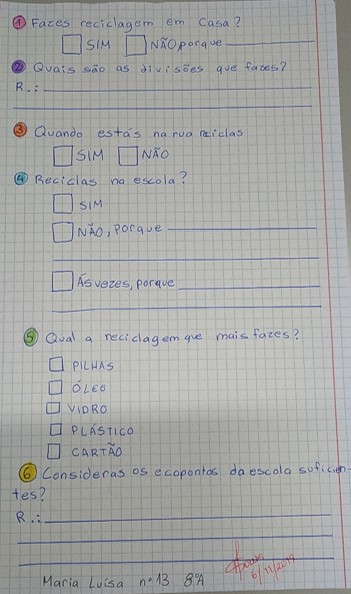 ① Fazes reciclagem em casa?
SIM NÃO porque
② Quais são as divisões que fazes?
R.:
③ Quando estás na rua reciclas
SIM NÃO
④ Reciclas na escola?
SIM
NÃO, porque
Ás vezes, porque
⑤ Qual a reciclagem que mais fazes?
PILHAS
ÓLEO
VIDRO
PLÁSTICO
CARTÃO
⑥ Consideras os ecopontos da escola suficien-
tes?
R.:
6/11/2019
Maria Luísa nº13 8ºA